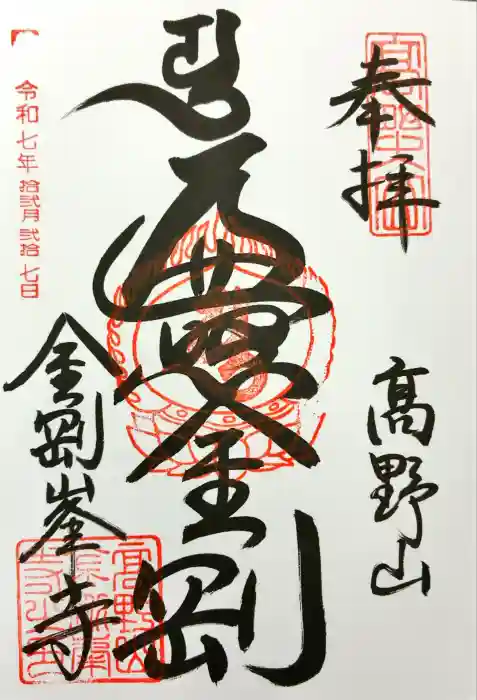 奉拝
高野山
遍照金剛
金剛峯寺
令和七年 拾弐月 弐拾七日